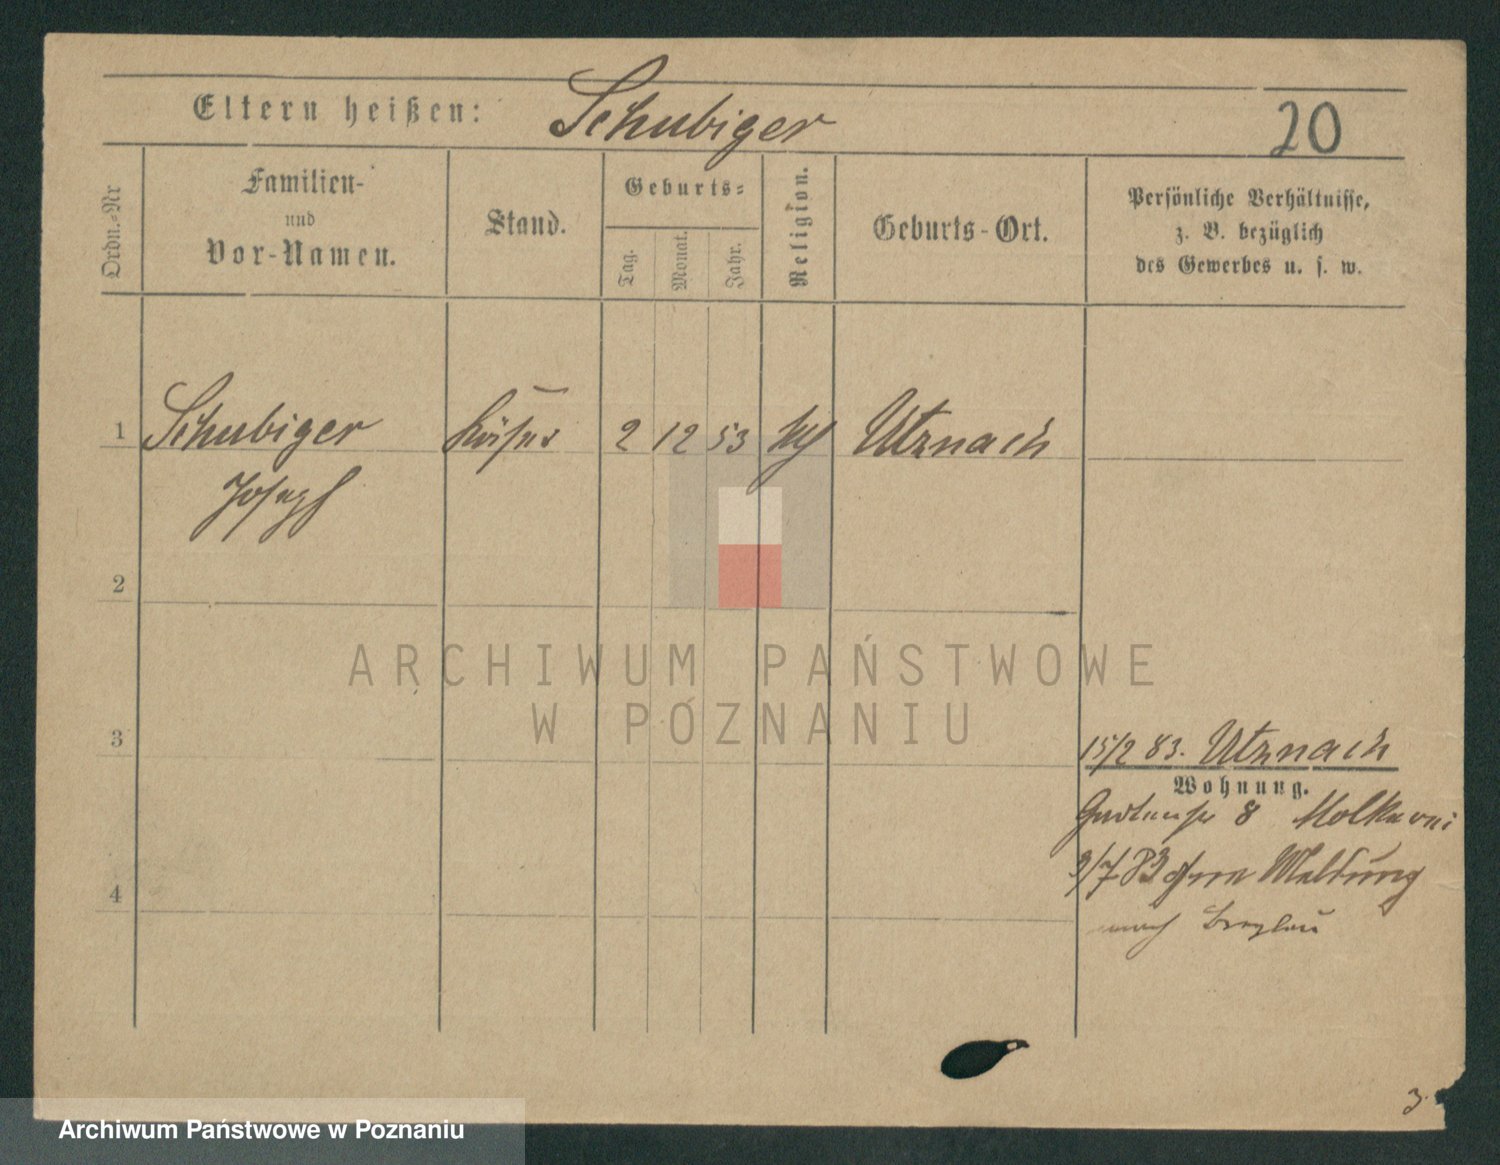 Eltern heißen: Schubiger 20
Ordn.-Nr
Familien-
und
Vor-Namen.
Stand.
Geburts-
Tag.
Monat.
Jahr.
Religion.
Geburts-Ort.
Persönliche Verhältnisse,
z. B. bezüglich
des Gewerbes u. s. w.
1 Schubiger Käser 2 12 53 Utznach
Joseph
2
ARCHIWUM PAŃSTWOWE
W POZNANIU
3
15/2 83. Utznach
Wohnung.
8 Molkerei
3/7 83 ohne Meldung
4
nach Breslau
3.
Archiwum Państwowe w Poznaniu